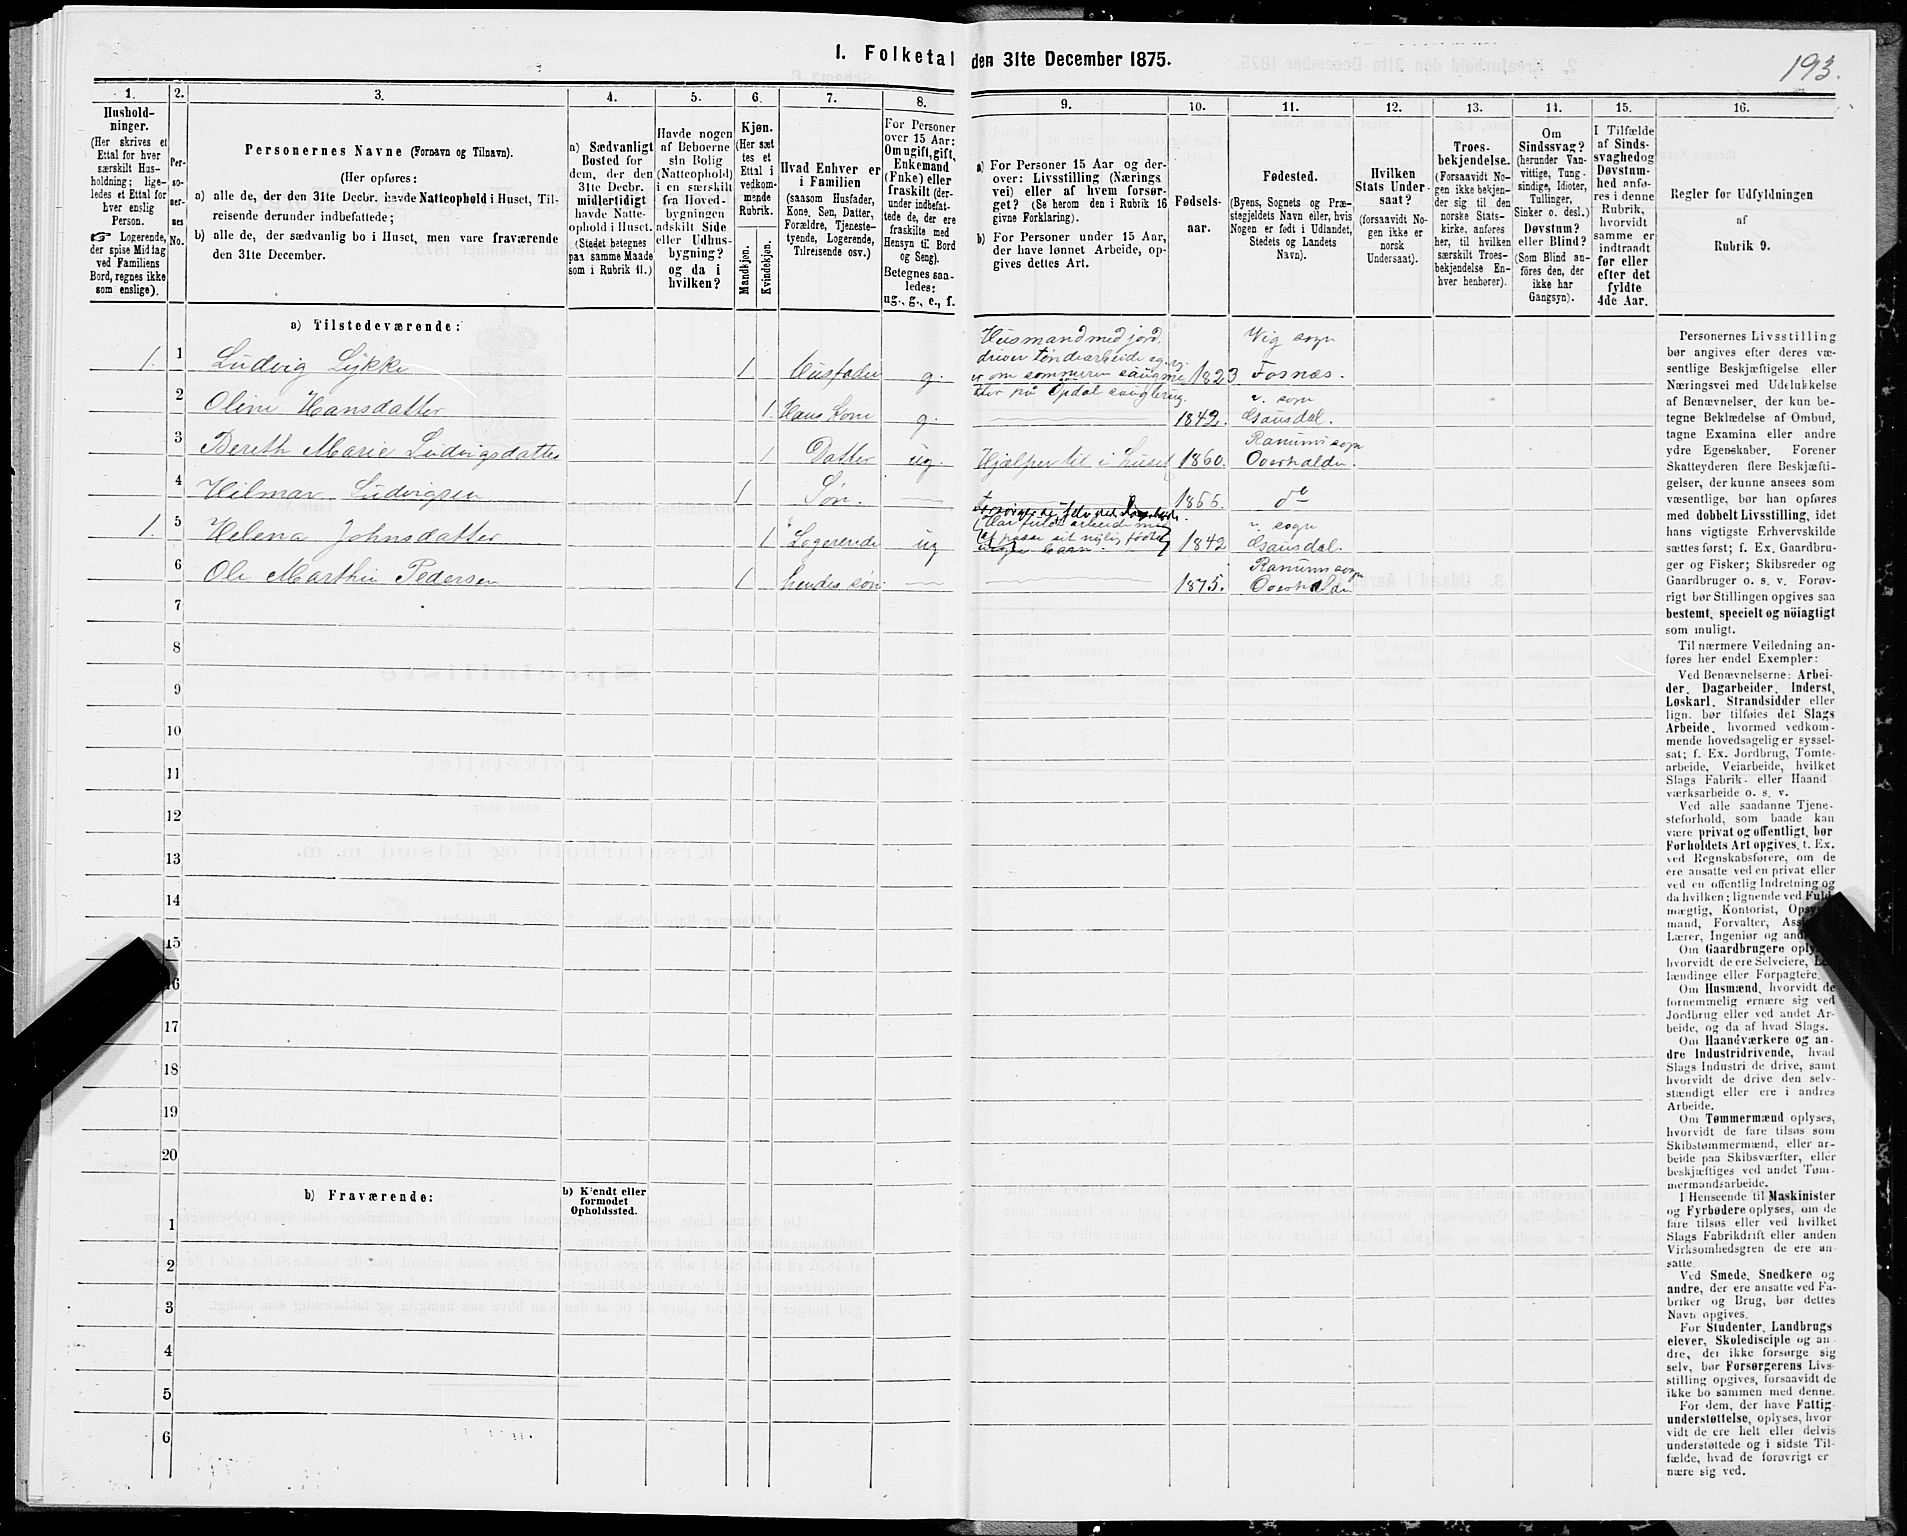 I. Folketal den 31te December 1875.
193.
1.
Hushold-
ninger.
(Her skrives et
Ettal for hver
særskilt Hus-
holdning; lige-
ledes et Ettal for
hver enslig
Person.
Logerende,
der spise Middag
ved Familiens
Bord, regnes ikke
som enslige).
2.
Per-
so-
ner-
nes
No.
3.
Personernes Navne (Fornavn og Tilnavn).
(Her opføres:
a) alle de, der den 31te Decbr. havde Natteophold i Huset, Til-
reisende derunder indbefattede;
b) alle de, der sædvanlig bo i Huset, men vare fraværende
den 31te December.
4.
a) Sædvanligt
Bosted for
dem, der den
31te Decbr.
midlertidigt
havde Natte-
ophold i Huset.
(Stedet betegnes
paa samme Maade
som i Rubrik 11.)
5.
Havde nogen
af Beboerne
sin Bolig
(Natteophold)
i en særskilt
fra Hoved-
bygningen
adskilt Side
eller Udhus-
bygning?
og da i
hvilken?
6.
Kjøn.
(Her sæt
tes et
Ettal i
vedkom-
mende
Rubrik.
Mandkjøn.
Kvindekjøn.
7.
Hvad Enhver er
i Familien
(saasom Husfader,
Kone, Søn, Datter,
Forældre, Tjeneste-
tyende, Logerende,
Tilreisende osv.)
8.
For Personer
over 15 Aar:
Om ugift, gift,
Enkemand
(Enke) eller
fraskilt (der-
under indbefat-
tede de, der ere
fraskilte med
Hensyn til Bord
og Seng).
Betegnes saa-
ledes:
ug., g., e., f.
9.
a) For Personer 15 Aar og der-
over: Livsstilling (Nærings
vei) eller af hvem forsør-
get? (Se herom den i Rubrik 16
givne Forklaring).
b) For Personer under 15 Aar,
der have lønnet Arbeide, op-
gives dettes Art.
10.
Fødsels-
aar.
11.
Fødested.
(Byens, Sognets og Præ-
stegjeldets Navn eller, hvis
Nogen er født i Udlandet,
Stedets og Landets
Navn).
12.
Hvilken
Stats Under-
saat?
(forsaavidt No-
gen ikke er
norsk
Undersaat).
13.
Troes-
bekjendelse.
(Forsaavidt No-
gen ikke bekjen-
der sig til den
norske Stats-
kirke, anføres
her, til hvilken
særskilt Troes-
bekjendelse En-
hver henhører).
14.
Om
Sindssvag?
(herunder Van-
vittige, Tung-
sindige, Idioter,
Tullinger,
Sinker o. desl.)
Døvstum?
eller Blind?
(Som Blind an-
føres den, der
ikke har
Gangsyn).
15.
I Tilfælde
af Sinds-
svaghed og
Døvstum-
hed anfø-
res i denne
Rubrik,
hvorvidt
samme er
indtraadt
før eller
efter det
fyldte
4de Aar.
16.
Regler for Udfyldningen
af
Rubrik 9.
a) Tilstedeværende:
1. 1 Ludvig Lykke 1 Husfader g. Husmand med jord, driver tøndearbeide og er om sommeren paa Opdal 1823 Vig sogn Fosnæs.
2 Oline Hansdatter 1. Hans Kone g. 1842. sogn Gausdal.
3 Bereth Marie Ludvigsdatter 1 Datter ug. Hjælper til i huset 1860. Ranums sogn Overhalden.
4 Hilmar Ludvigsen 1 Søn. 1866. do
1. 5 Helena Johnsdatter 1 Logerende ug 1842 sogn Gausdal.
6 Ole Marthin Pedersen 1 hendes søn 1875. Ranums sogn Overhalden
7
8
9
10
11
12
13
14
15
16
17
18
19
20
b) Fraværende:
b) Kjendt eller
formodet
Opholdssted.
1
2
3
4
5
6
Personernes Livsstilling
bør angives efter deres væ-
sentlige Beskjæftigelse eller
Næringsvei med Udelukkelse
af Benævnelser, der kun be-
tegne Beklædelse af Ombud,
tagne Examina eller andre
ydre Egenskaber. Forener
Skatteyderen flere Beskjæfti-
gelser, der kunne ansees som
væsentlige, bør han opføres
med dobbelt Livsstilling, idet
hans vigtigste Erhvervskilde
sættes først; f. Ex. Gaardbru-
ger og Fisker; Skibsreder og
Gaardbruger o. s. v. Forøv-
rigt bør Stillingen opgives saa
bestemt, specielt og nöiagtigt
som muligt.
Til nærmere Veiledning an-
føres her endel Exempler:
Ved Benævnelserne: Arbei-
der, Dagarbeider, Inderst,
Løskarl, Strandsidder eller
lign. bør tilføies det Slags
Arbeide, hvormed vedkom-
mende hovedsagelig er syssel-
sat; f. Ex. Jordbrug, Tomte-
arbeide, Veiarbeide, hvilket
Slags Fabrik- eller Haand
værksarbeide o. s. v.
Ved alle saadanne Tjene-
steforhold, som baade kan
være privat og offentligt, bør
Forholdets Art opgives, t. Ex.
ved Regnskabsførere, om de
ere ansatte ved en privat eller
ved en offentlig Indretning og
da hvilken; lignende ved Fuld-
mægtig, Kontorist,
mand, Forvalter,
Lærer, Ingeniør og
Om Gaardbrugere
hvorvidt de ere Selveiere,
lændinge eller Forpagtere.
Om Husmænd, hvorvidt de
fornemmelig ernære sig ved
Jordbrug eller ved andet Ar-
beide, og da af hvad Slags.
Om Haandværkere og an-
dre Industridrivende, hvad
Slags Industri de drive, samt
hvorvidt de drive den selv-
stændigt eller ere i andres
Arbeide.
Om Tømmermænd oplyses,
hvorvidt de fare tilsøs som
Skibstømmermænd, eller ar-
beide paa Skibsværfter, eller
beskjæftiges ved andet Tøm-
mermandsarbeide.
I Henseende til Maskinister
og Fyrbødere oplyses, om de
fare tilsøs eller ved hvilket
Slags Fabrikdrift eller anden
Virksomhedsgren de ere an-
satte.
Ved Smede, Snedkere og
andre, der ere ansatte ved Fa-
briker og Brug, bør dettes
Navn opgives.
For Studenter, Landbrugs
elever, Skoledisciple og an
dre, der ikke forsørge sig
selv, bør Forsørgerens Livs-
stilling opgives, forsaavidt de
ikke bo sammen med denne.
For dem, der have Fattig
understøttelse, oplyses, hvor
vidt de ere helt eller delvis
understøttede og i sidste Til-
fælde, hvad de forøvrigt er
nære sig ved.